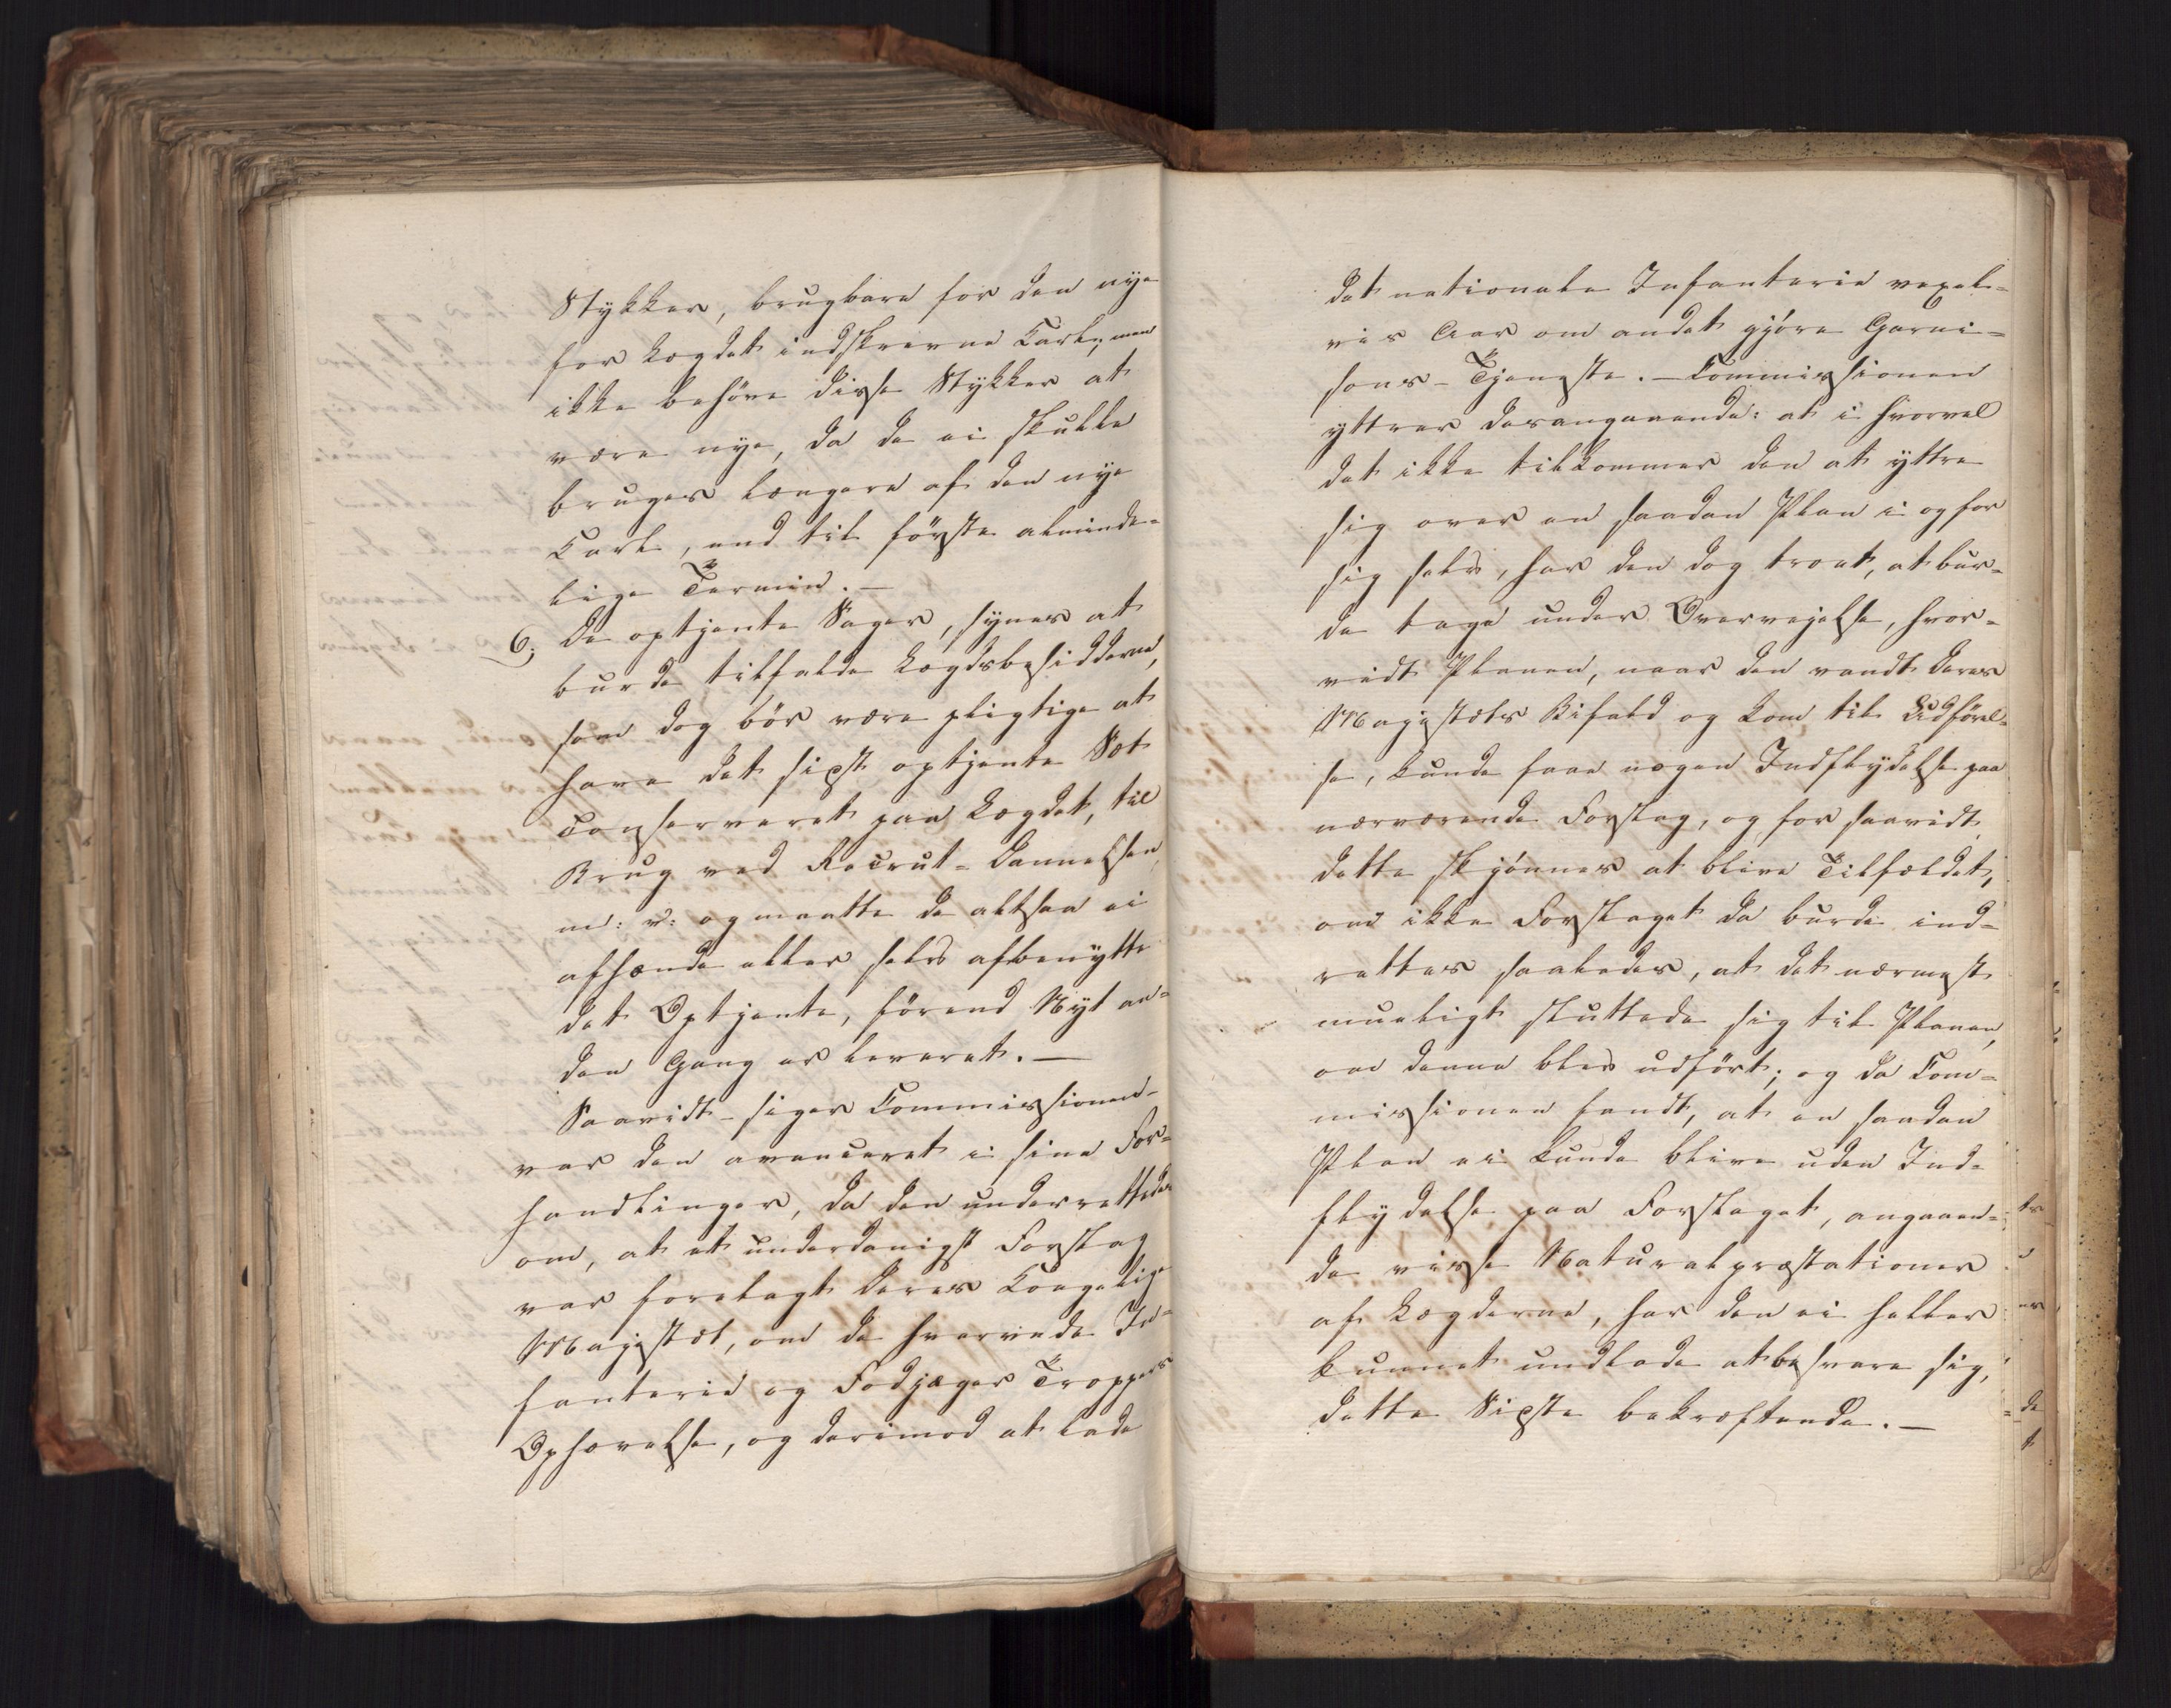 Stykker, brugbare for den nye
for Lægdet indskrevne Karl, men
ikke behöve disse Stykker at
være nye, da de ei skulle
bruges længere af den nye
Karl, end til förste alminde-
lige Termin. —
6; De optjente Sager, synes at
burde tilfalde Lægdsbesidderne,
som dog bör være pligtige at
have det sidst optjente Sæt
conserveret paa Lægdet, til
Brug ved Recrut-Dannelsen
m: v: og maatte de altsaa ei
afhænde eller selv afbenytte
det Optjente, förend Nyt an-
den Gang er leveret. —
Saavidt – siger Commissionen –
var den avanceret i sine For-
handlinger, da den underrettedes
om, at et underdanigst Forslag
var forelagt Deres Kongelige
Majestæt, om de hvervede In-
fanterie og Fodjæger Troppers
Ophævelse, og derimod at lade
det nationale Infanterie vexel-
vis Aar om andet gjöre Garni-
sons-Tjeneste. – Commissionen
yttrer desangaaende: at i hvorvel
det ikke tilkommer den at yttre
sig over en saadan Plan i og for
sig selv, har den dog troet, at bur-
de tage under Overvejelse, hvor-
vidt Planen, naar den vandt Deres
Majestæts Bifald og kom til Udförel-
se, kunde faae nogen Indflydelse paa
nærværende Forslag, og for saavidt
dette skjönnes at blive Tilfældet,
om ikke Forslaget da burde ind-
rettes saaledes, at det nærmest
mueligt sluttede sig til Planen,
om denne blev udfört; og da Com-
missionen fandt, at en saadan
Plan ei kunde blive uden Ind-
flydelse paa Forslaget, angaaen-
de visse Naturalpræstationer
af Lægderne, har den ei heller
kunnet undlade at besvare sig,
dette Sidste bekræftende. —